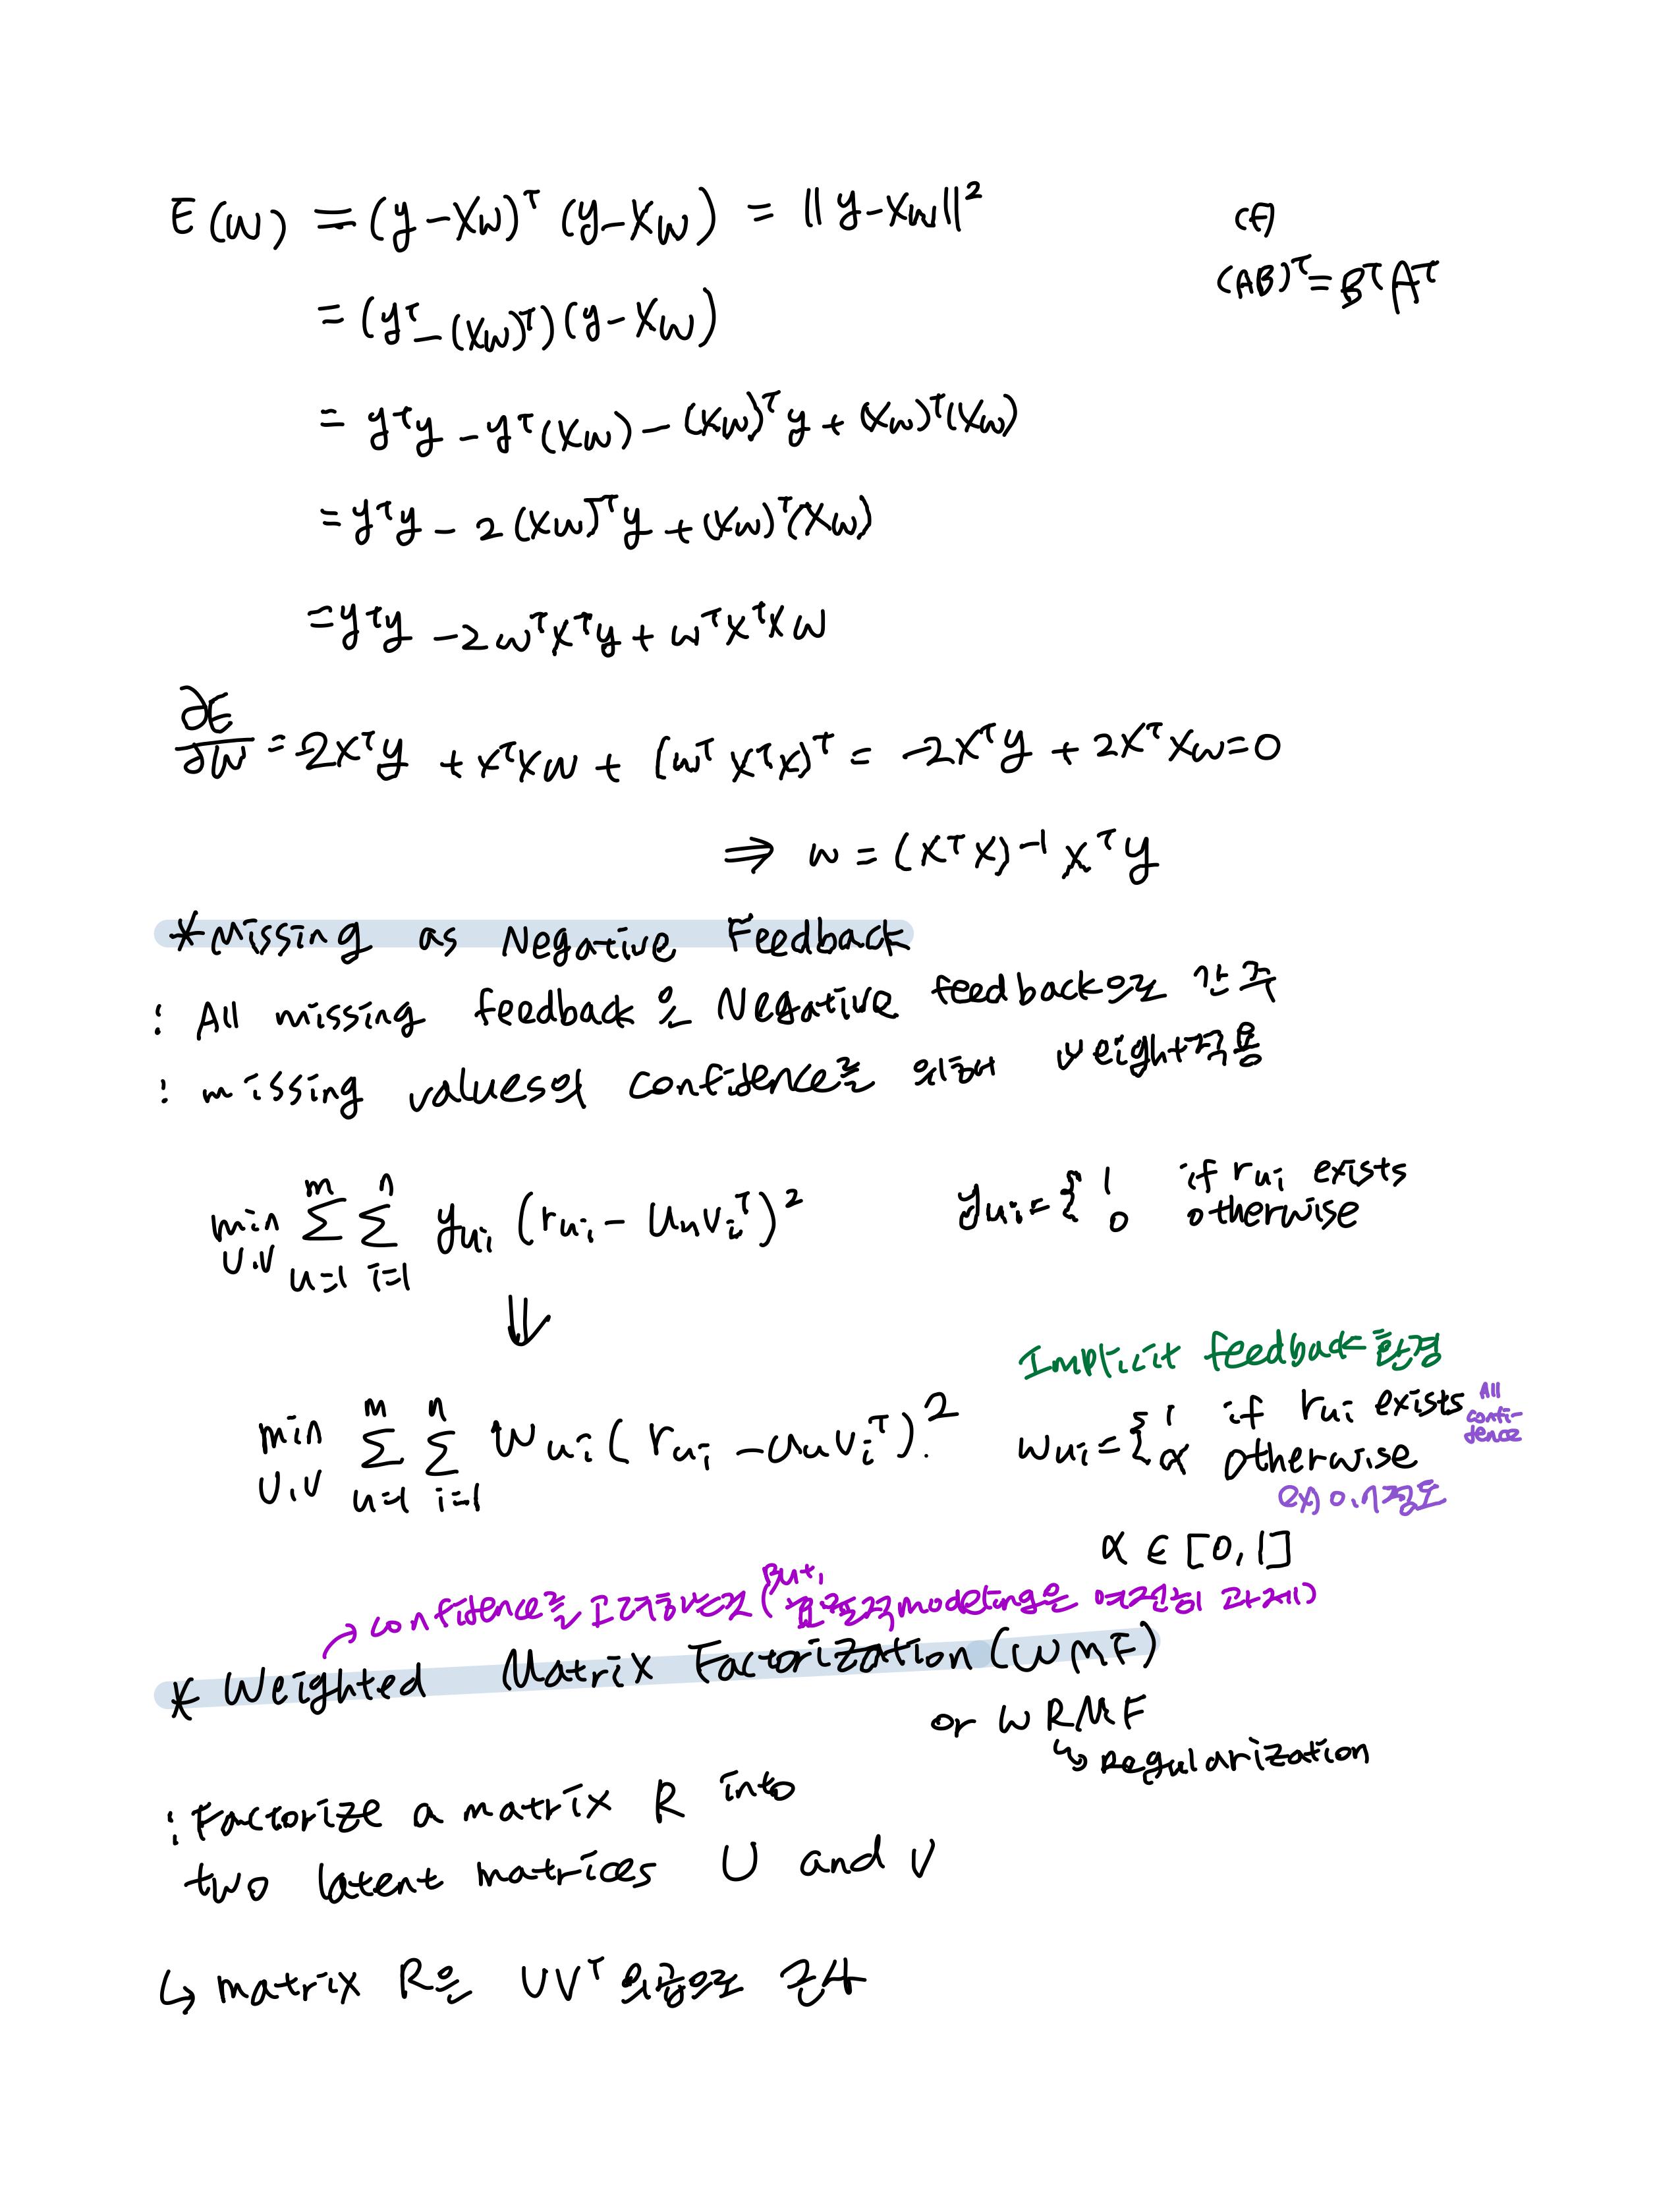 E(w) = (y-Xw)ᵀ (y-Xw) = ||y-Xw||²
cf)
(AB)ᵀ = BᵀAᵀ
= (yᵀ-(Xw)ᵀ)(y-Xw)
= yᵀy - yᵀ(Xw) - (Xw)ᵀy + (Xw)ᵀ(Xw)
= yᵀy - 2(Xw)ᵀy + (Xw)ᵀ(Xw)
= yᵀy - 2wᵀXᵀy + wᵀXᵀXw
∂E/∂w = -2Xᵀy + XᵀXw + (wᵀXᵀX)ᵀ = -2Xᵀy + 2XᵀXw = 0
⇒ w = (XᵀX)⁻¹Xᵀy
* Missing as Negative Feedback
: All missing feedback은 Negative feedback으로 간주
: missing values의 confidence를 위해 weight적용
min U,V Σ_{u=1}^{m} Σ_{i=1}^{n} y_ui (r_ui - u_u v_iᵀ)²
y_ui = { 1 if r_ui exists
0 otherwise
⇓
Implicit feedback 환경
min U,V Σ_{u=1}^{m} Σ_{i=1}^{n} w_ui (r_ui - u_u v_iᵀ)².
w_ui = { 1 if r_ui exists
All confi-
dence
α otherwise
ex) 0.1정도
α ∈ [0,1]
→ confidence를 고려하는것 (But, 효율적 modeling은 여전히 과제)
* Weighted Matrix Factorization (WMF)
or WRMF
↳ Regularization
: Factorize a matrix R into
two latent matrices U and V
↳ matrix R은 UVᵀ의곱으로 근사